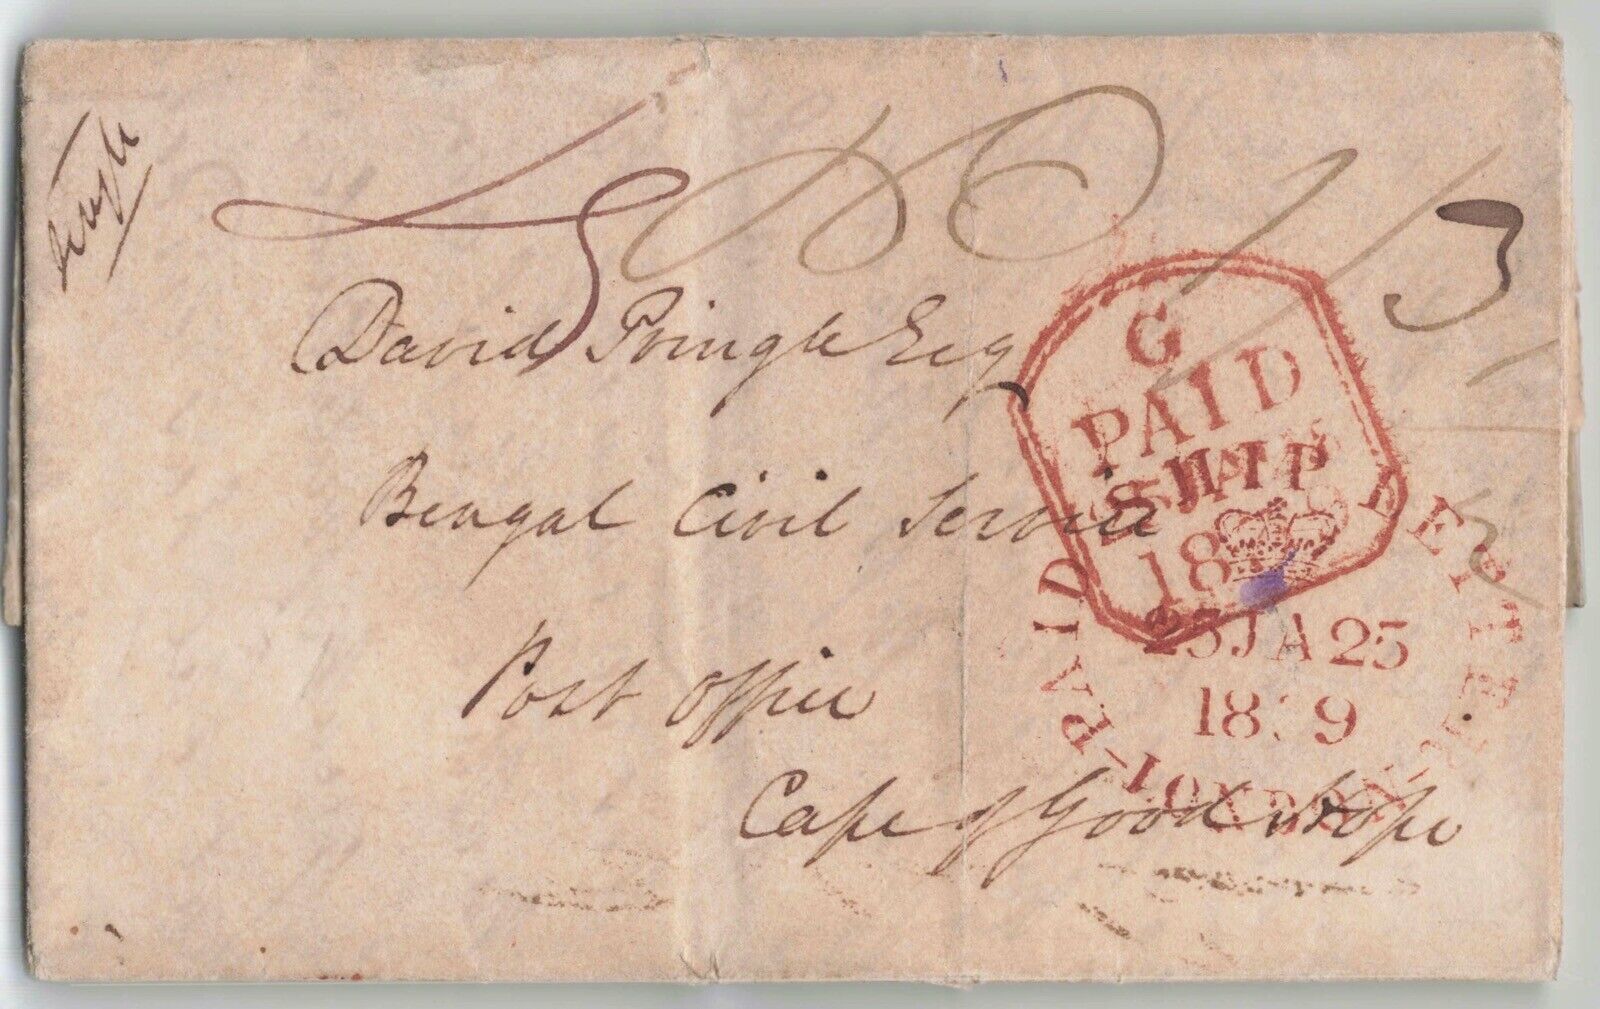 Single
David Pringle Esq
Bengal Civil Service
Post Office
Cape of Good Hope
G
PAID
18
PAID SHIP LETTER LONDON
25JA25
18 9
1/3